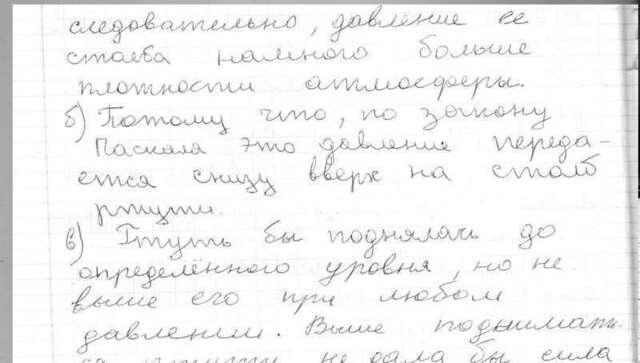 следовательно, давление её
столба намного больше
плотности атмосферы.
б) Потому что, по закону
Паскаля это давление переда-
ется снизу вверх на столб
ртути.
в) Ртуть бы поднялась до
определённого уровня, но не
выше его при любом
давлении. Выше поднимать-
ся ртути не дала бы сила